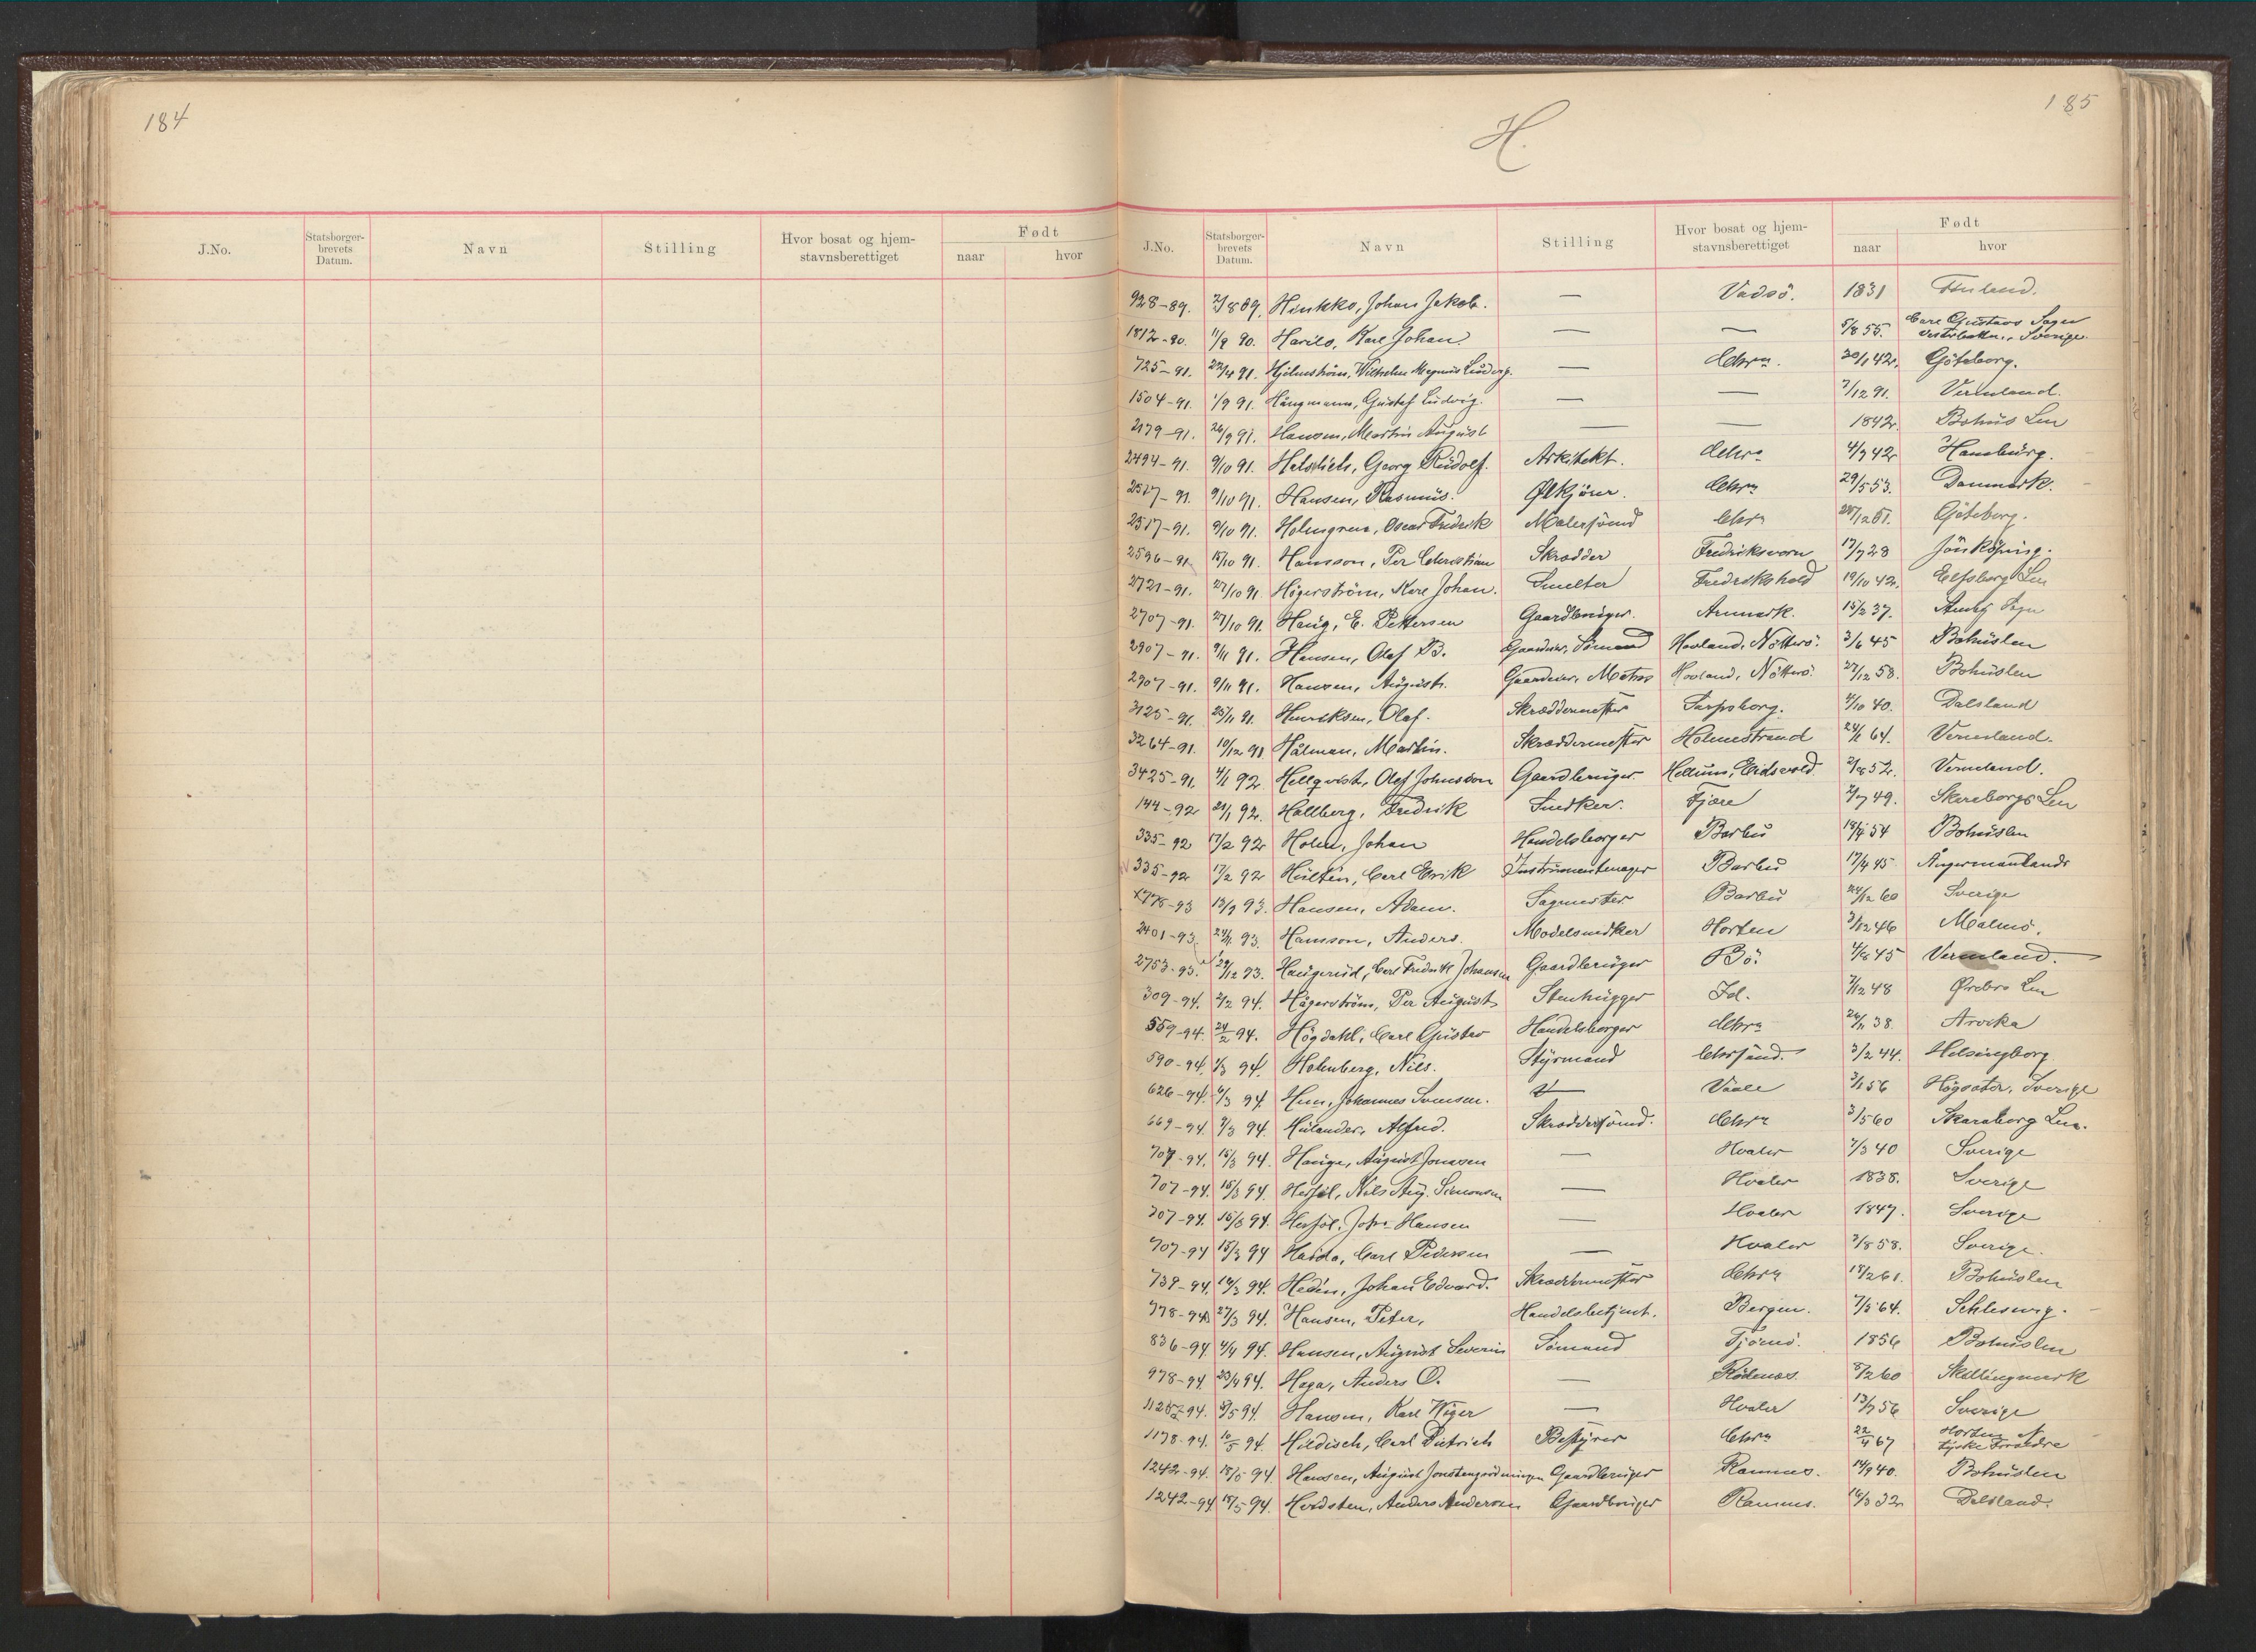 184
J.No. Statsborger-brevets Datum. Navn Stilling Hvor bosat og hjem-stavnsberettiget Født naar hvor
185
H.
J.No. Statsborger-brevets Datum. Navn Stilling Hvor bosat og hjem-stavnsberettiget Født naar hvor
928-89. 89. Hinkko, Johan Jakob. — Vadsö. 1831 Finland.
1812-90. 11/9 90. Harilo, Karl Johan. — — 5/8 55. Carl Gustavs Sogn Vesterbotten, Sverige.
725-91. 22/4 91. Hjelmström, Wilhelm Magnus Ludvig. — Chra. 30/1 42. Göteborg.
1504-91. 1/9 91. Hångmann, Gustaf Ludvig. — — 7/12 91. Vermland.
2179-91. 26/9 91. Hansen, Martin August — — 1842. Bohus Len
2494-91. 9/10 91. Georg Rudolf. Arkitekt. Chra 4/9 42 Hamburg.
2517-91. 9/10 91. Hansen, Rasmus. Ølkjører. Chra 29/5 53. Danmark.
2517-91. 9/10 91. Holmgren, Oscar Fredrik Malersvend Chra Göteborg.
2596-91. 15/10 91. Hansson, Per Christian Skrædder Fredriksværn 17/7 28 Jönköping.
2721-91. 27/10 91. Högerström, Karl Johan. Smelter Fredrikshald 19/10 42. Elfsborg Len
2707-91. 27/10 91. Haug, E. Pettersen Gaardbruger. Aremark. 15/2 37. Sogn
2907-91. 9/11 91. Hansen, Olaf B. Sømand Hovland, Nötterö. 3/6 45 Bohuslen
2907-91. 9/11 91. Hansen, August. Matros Hovland, Nötterö. 27/12 58. Bohuslen
3125-91. 25/11 91. Henriksen, Olaf. Skræddermester Sarpsborg. 4/10 40. Dalsland
3264-91. 10/12 91 Hålman, Martin. Skræddermester Holmestrand 64. Vermland.
3425-91. 4/1 92. Hellqvist, Olof Johnsson Gaardbruger. Hellum, Eidsvold. 2/8 52. Vermland.
144-92 21/1 92. Hallberg, Fredrik Snedker. Fjære 2/7 49. Skaraborgs Len
335-92 17/2 92 Holm, Johan Handelsborger Barbu 54 Bohuslen
335-92 17/2 92 Hultén, Carl Erik Instrumentmager Barbu 17/4 45 Ångermanland
1778-93 13/9 93. Hansen, Adam. Sagmester Barbu 24/12 60 Sverige
2401-93. 93. Hansson, Anders. Modelsnedker Horten 3/12 46 Malmö.
2753-93. 29/12 93. Haugerud, Carl Fredrik Johansen Gaardbruger Bö. 4/8 45 Vermland.
309-94. 2/2 94. Hågerström, Per August Stenhugger Id. 7/12 48 Ørebro Len
559-94. 24/2 94. Högdahl, Carl Gustav Handelsborger Chra 26/11 38. Arvika
590-94. 1/3 94. Holmberg, Nils. Styrmand Chrsand. 3/2 44. Helsingborg
626-94. 6/3 94. Hem, Johannes Svensen. — Vaale 3/1 56 Högsater, Sverige
669-94. 7/3 94. Hulander, Alfred. Skræddersvend. Chra 3/5 60 Skaraborg Len.
707-94. 15/3 94. Hauge, August Jonasen — Hvaler 7/3 40 Sverige
707-94. 15/3 94. Nils Aug. Simonsen — Hvaler 1838. Sverige
707-94. 15/3 94. Hansen — Hvaler 1847. Sverige
707-94 15/3 94 Carl Pedersen — Hvaler 7/8 58. Sverige.
739-94. 16/3 94. Hedén, Johan Edvard. Skræddermester Chra 18/2 61. Bohuslen
778-94 27/3 94. Hansen, Peter, Handelsbetjent. Bergen. 7/3 64. Schleswig.
836-94. 4/4 94. Hansen, August Severin Sömand Tjömö. 1856 Bohuslen
978-94 23/4 94. Haga, Anders O. — Rödenes. 8/2 60 Skillingmark
94. 3/5 94. Hansen, Karl — Hvaler 13/7 56 Sverige
1178-94. 10/5 94. Hildisch, Carl Dietrich Bestyrer Chra 22/4 67 Horten af tyske Forældre
1242-94. 18/5 94. Hansen, August Gaardbruger Ramnes. 14/9 40. Bohuslen
1242-94 18/5 94. Anders Andersen Gaardbruger Ramnes. 16/3 32 Dalsland.